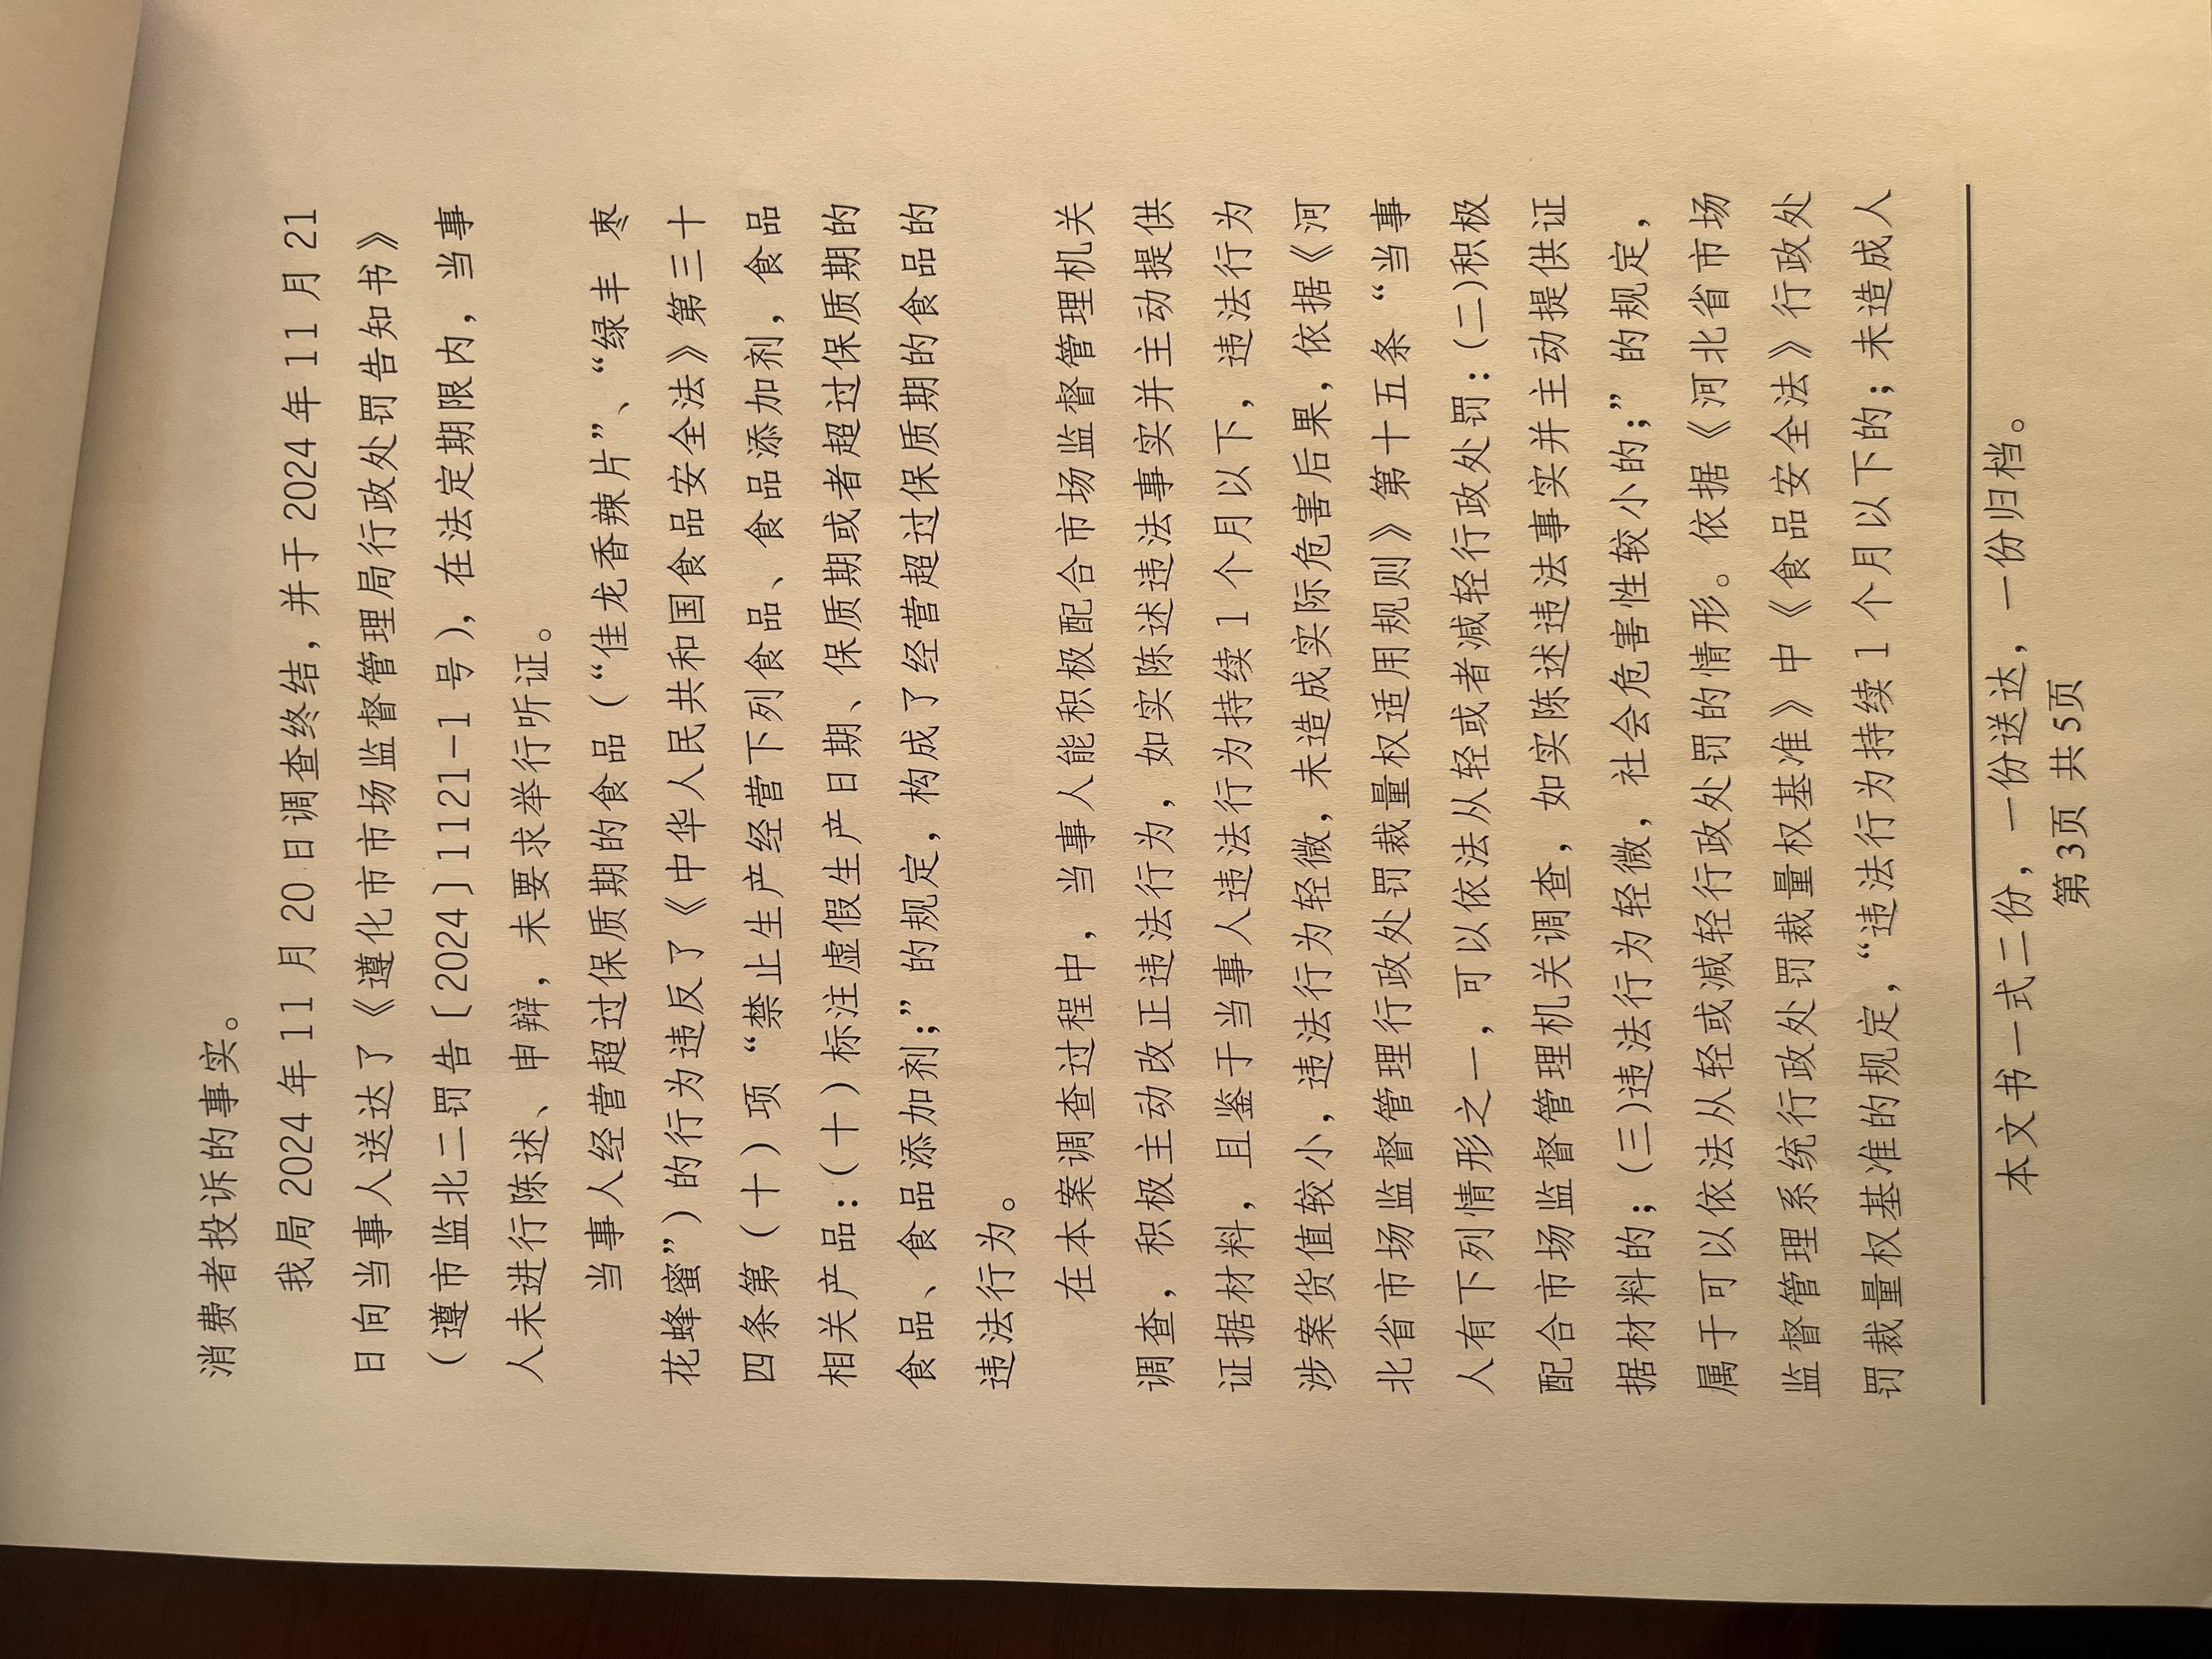 消费者投诉的事实。
我局 2024 年 11 月 20 日调查终结，并于 2024 年 11 月 21
日向当事人送达了《遵化市市场监督管理局行政处罚告知书》
（遵市监北二罚告〔2024〕1121-1 号），在法定期限内，当事
人未进行陈述、申辩，未要求举行听证。
当事人经营超过保质期的食品（“佳龙香辣片”、“绿丰 枣
花蜂蜜”）的行为违反了《中华人民共和国食品安全法》第三十
四条第（十）项“禁止生产经营下列食品、食品添加剂，食品
相关产品：（十）标注虚假生产日期、保质期或者超过保质期的
食品、食品添加剂；”的规定，构成了经营超过保质期的食品的
违法行为。
在本案调查过程中，当事人能积极配合市场监督管理机关
调查，积极主动改正违法行为，如实陈述违法事实并主动提供
证据材料，且鉴于当事人违法行为持续 1 个月以下，违法行为
涉案货值较小，违法行为轻微，未造成实际危害后果，依据《河
北省市场监督管理行政处罚裁量权适用规则》第十五条“当事
人有下列情形之一，可以依法从轻或者减轻行政处罚：(二)积极
配合市场监督管理机关调查，如实陈述违法事实并主动提供证
据材料的；(三)违法行为轻微，社会危害性较小的；”的规定，
属于可以依法从轻或减轻行政处罚的情形。依据《河北省市场
监督管理系统行政处罚裁量权基准》中《食品安全法》行政处
罚裁量权基准的规定，“违法行为持续 1 个月以下的；未造成人
本文书一式二份，一份送达，一份归档。
第3页 共5页